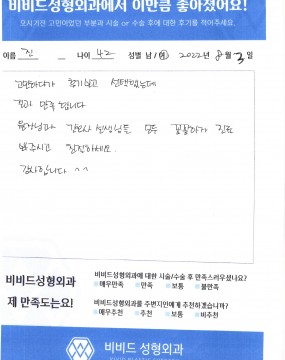 비비드성형외과에서 이만큼 좋아졌어요!
오시기전 고민이었던 부분과 시술 or 수술 후에 대한 후기를 적어주세요.
이름 진 나이 42 성별 남/여 2022년 8월 3일
고민하다가 후기보고 선택했는데
결과 만족합니다
원장님과 간호사 선생님들 모두 꼼꼼하게 진료
봐주시고 친절하세요.
감사합니다 ^^
비비드성형외과에 대한 시술/수술 후 만족스러우셨나요?
매우만족 만족 보통 불만족
비비드성형외과
제 만족도는요!
비비드성형외과를 주변지인에게 추천하겠습니까?
매우추천 추천 보통 비추천
비비드 성형외과